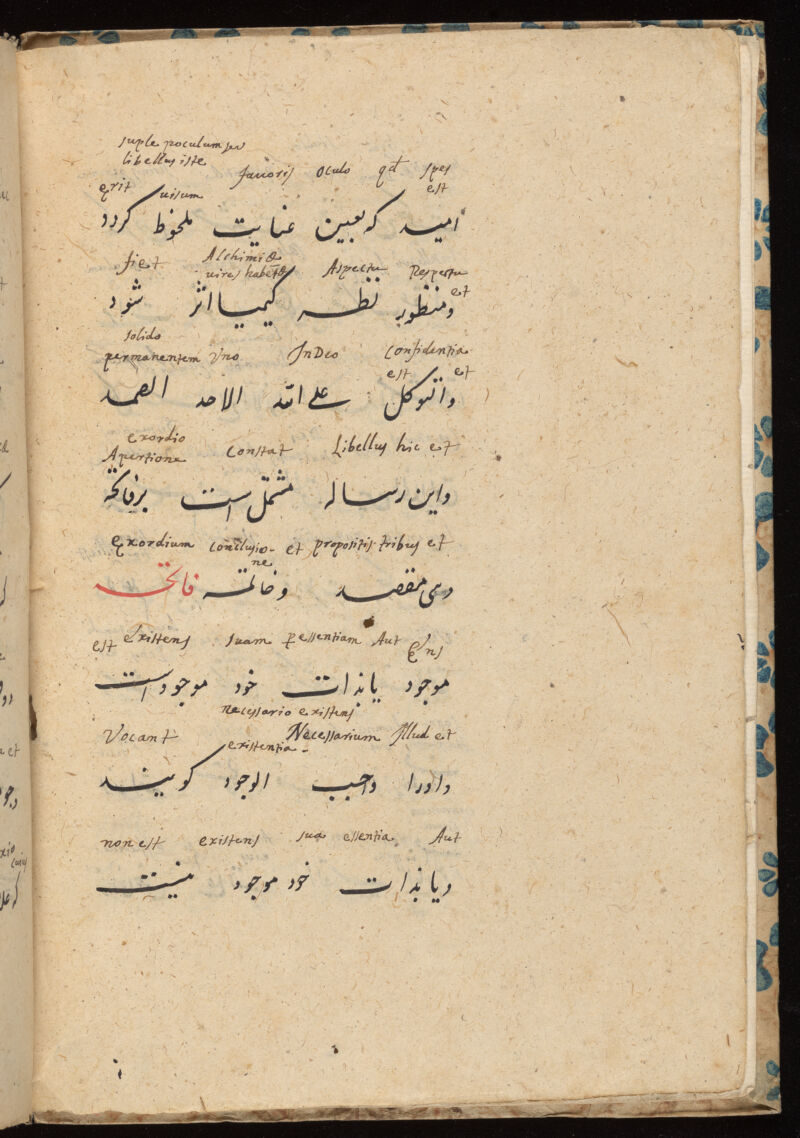 suple poculum seu
libellus iste
favoris oculo qd spes
erit visum est
امید که بعین عنایت ملحوظ کردد
fiet Alchimiæ Aspectu Respectu
vires habētē et
ومنظور نظر کیمیا اثر شود
solido
permanentem Vno In Deo Confidentia
est et
والتوکل علی الله الاحد الصمد
exordio
Apertione Constat Libellus hic et
واین رساله مشتمل است برفاتحه
exordium conclusio- et propositis tribus et
ne
وسی مقصد وخاتمه فاتحه
est existens suam p essentiam Aut Ens
موجود یا بذات خود موجود است
necessario existens
Vocant Necessarium Illud et
existentia
واورا واجب الوجود کویند
non est existens sua essentia Aut
ویا بذات خود موجود نیست